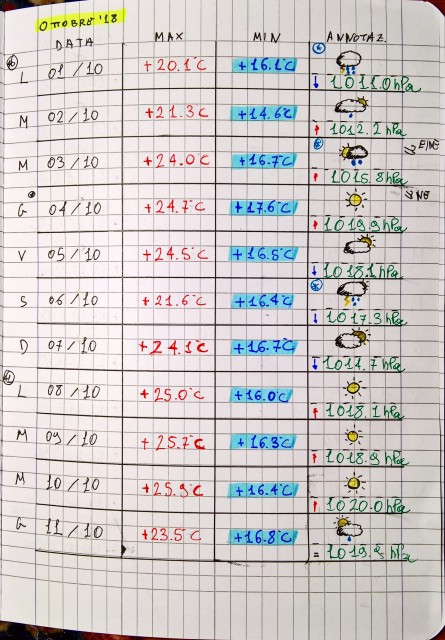 OTTOBRE '18
DATA MAX MIN ANNOTAZ.
L 01/10 +20.1°C +16.1°C 1011.0 hPa
M 02/10 +21.3°C +14.6°C 1012.2 hPa
M 03/10 +24.0°C +16.7°C 1015.8 hPa E/NE
G 04/10 +24.7°C +17.6°C 1019.9 hPa NE
V 05/10 +24.5°C +16.5°C 1018.1 hPa
S 06/10 +21.6°C +16.4°C 1017.3 hPa
D 07/10 +24.1°C +16.7°C hPa
L 08/10 +25.0°C +16.0°C 1018.1 hPa
M 09/10 +25.7°C +16.3°C 1018.9 hPa
M 10/10 +25.9°C +16.4°C 1020.0 hPa
G 11/10 +23.5°C +16.8°C = hPa